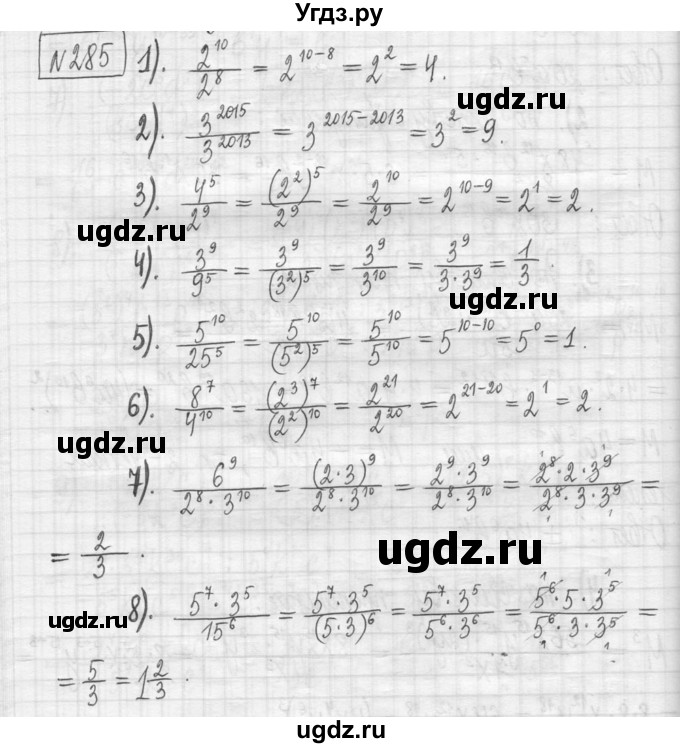 Угдз.ру
N285 1). 2^10/2^8 = 2^(10-8) = 2^2 = 4.
ugdz.ru
2). 3^2015/3^2013 = 3^(2015-2013) = 3^2 = 9.
ugdz.ru
3). 4^5/2^9 = (2^2)^5/2^9 = 2^10/2^9 = 2^(10-9) = 2^1 = 2.
ugdz.ru
4). 3^9/9^5 = 3^9/(3^2)^5 = 3^9/3^10 = 3^9/(3·3^9) = 1/3.
ugdz.ru
5). 5^10/25^5 = 5^10/(5^2)^5 = 5^10/5^10 = 5^(10-10) = 5^0 = 1.
6). 8^7/4^10 = (2^3)^7/(2^2)^10 = 2^21/2^20 = 2^(21-20) = 2^1 = 2.
ugdz.ru
ugdz.ru
7). 6^9/(2^8·3^10) = (2·3)^9/(2^8·3^10) = (2^9·3^9)/(2^8·3^10) = (2^8·2·3^9)/(2^8·3·3^9) =
= 2/3.
ugdz.ru
8). (5^7·3^5)/15^6 = (5^7·3^5)/(5·3)^6 = (5^7·3^5)/(5^6·3^6) = (5^6·5·3^5)/(5^6·3·3^5) =
ugdz.ru
ugdz.ru
= 5/3 = 1 2/3.
ugdz.ru
ugdz.ru